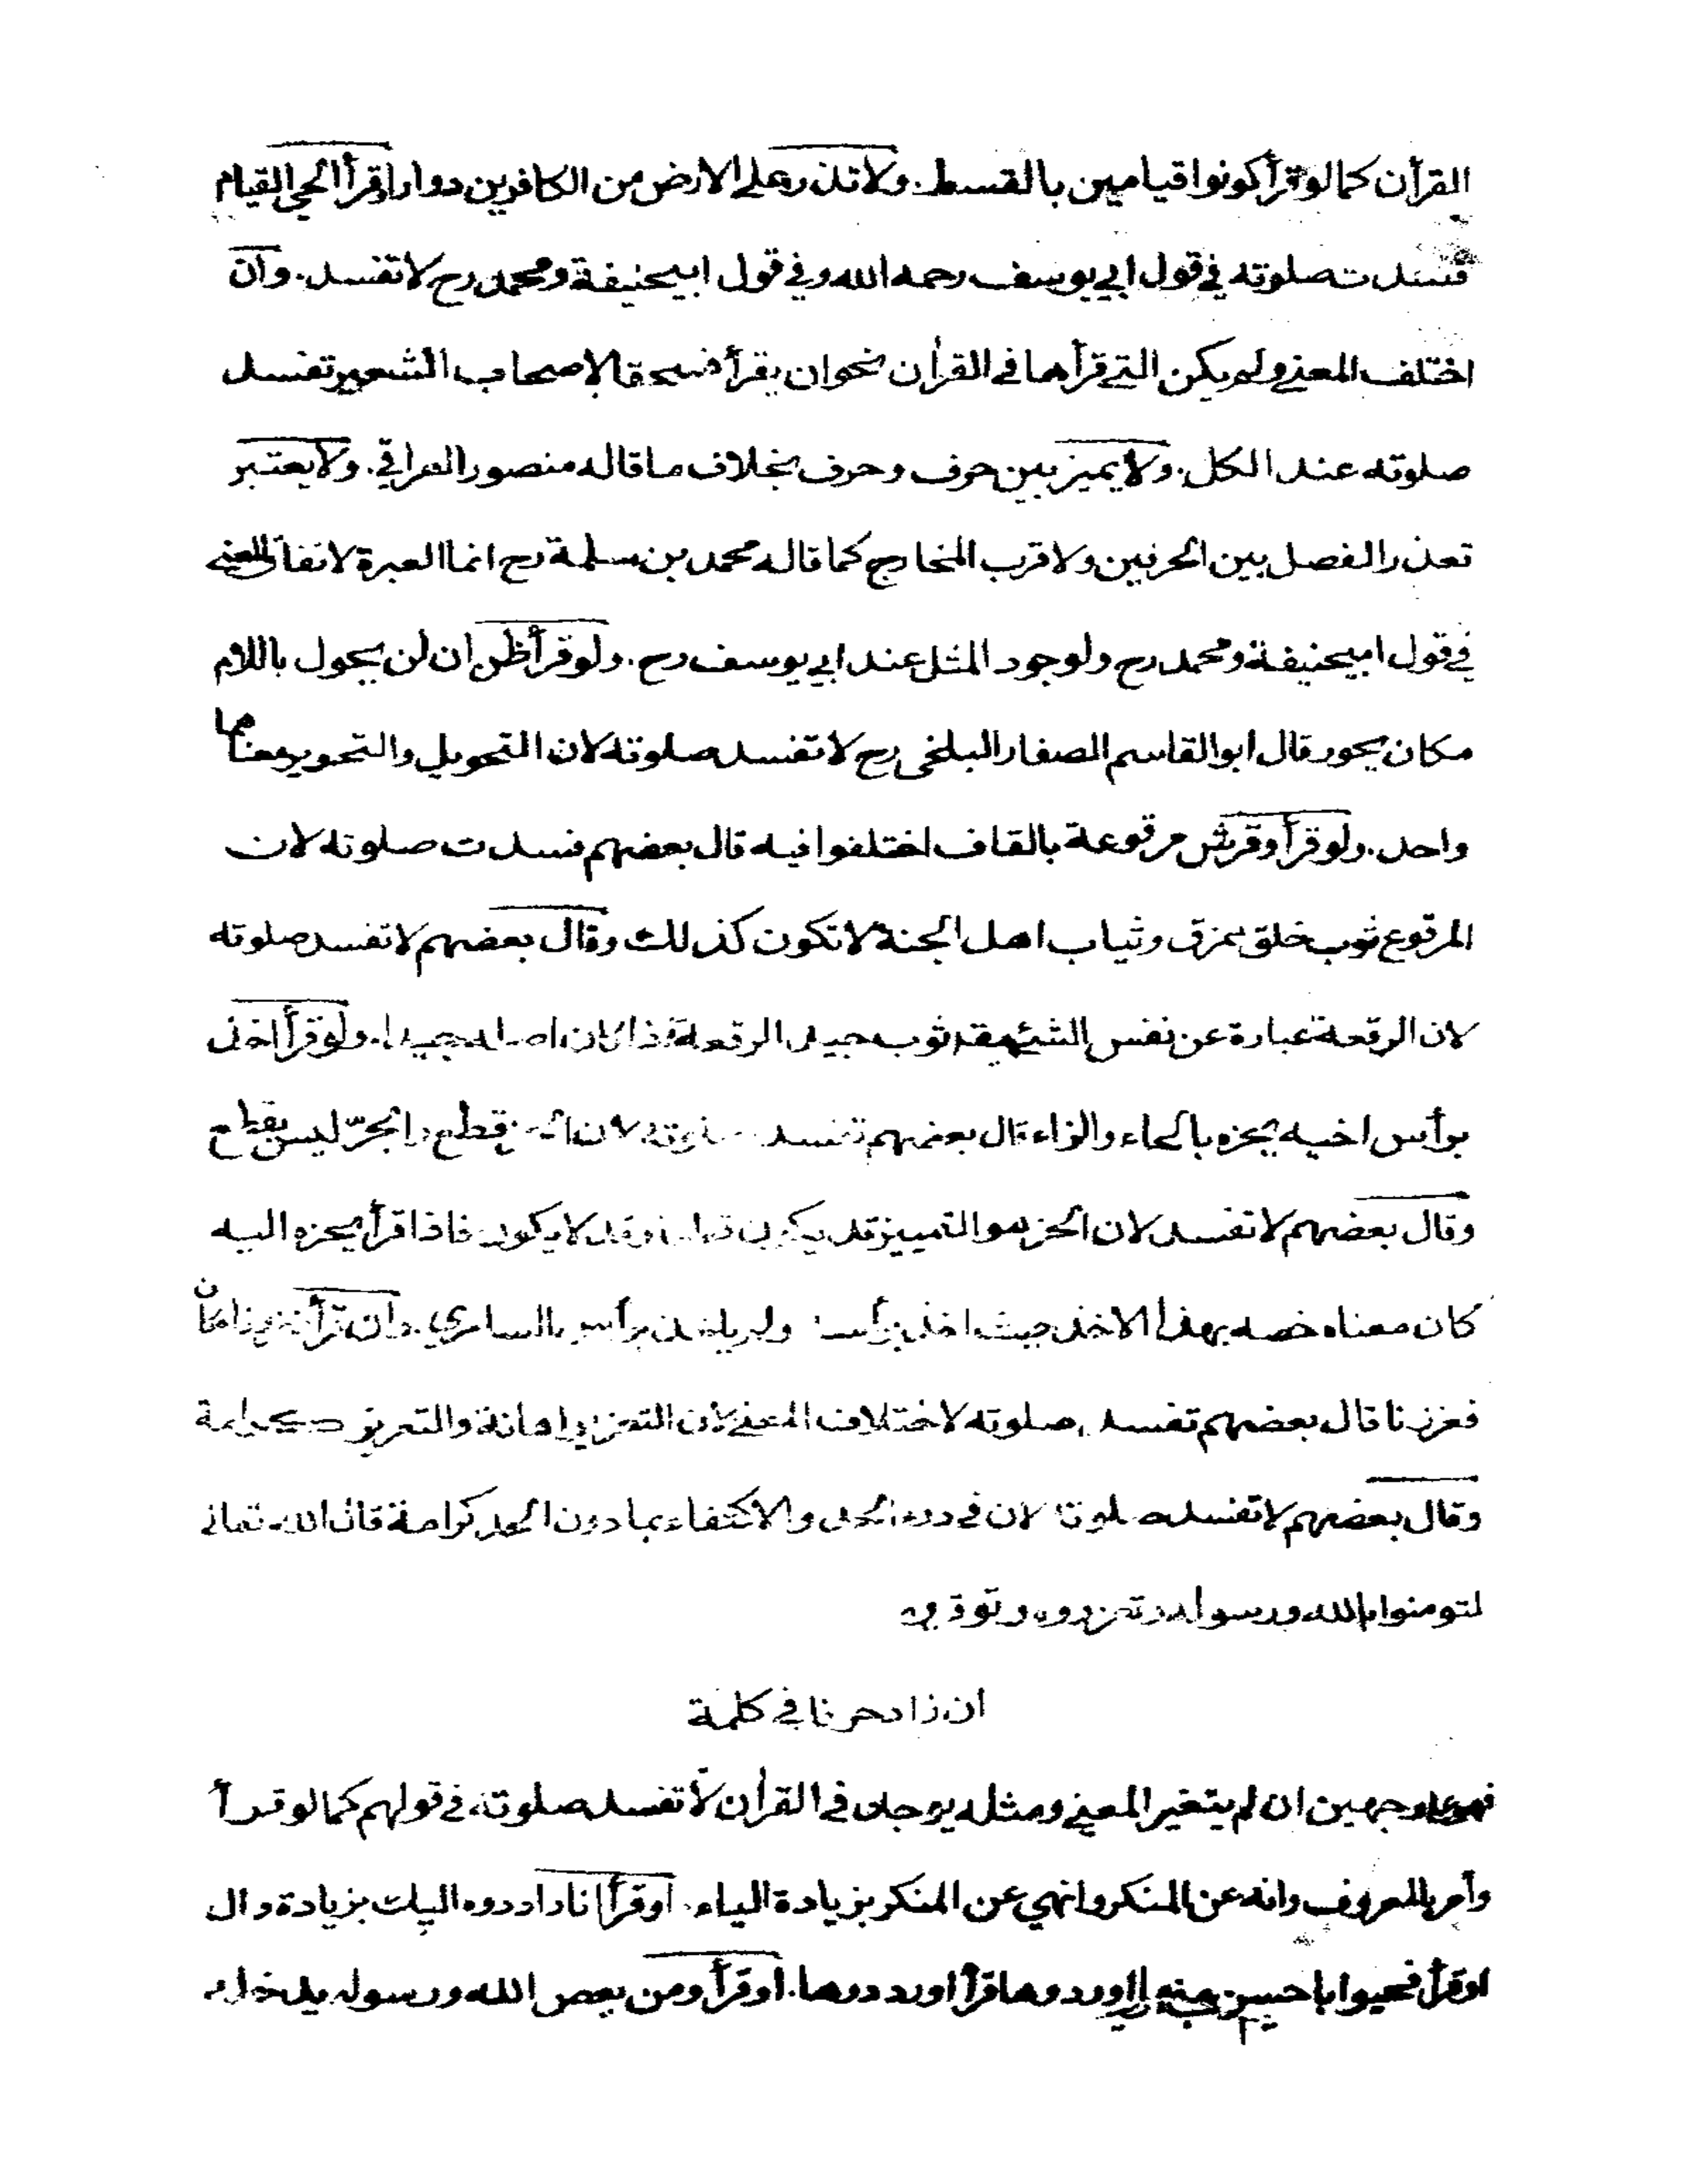 القرآن كما لو قرأ كونوا قياميين بالقسط. ولا تذر على الارض من الكافرين دوارا قرأ الحي القيام
فسدت صلوته في قول ابي يوسف رحمه الله وفي قول ابيحنيفة ومحمد رح لا تفسد. وان
اختلف المعنى ولم يكن التي قرأها في القرأن نحو ان يقرأ فسحقا لاصحاب الشعير تفسد
صلوته عند الكل. ولا يميز بين حرف وحرف بخلاف ما قاله منصور العراقي. ولا يعتبر
تعذر الفصل بين الحرفين ولا قرب المخارج كما قاله محمد بن سلمة رح انما العبرة لاتفاق المعنى
في قول ابيحنيفة ومحمد رح ولوجود المثل عند ابي يوسف رح. ولو قرأ ظن ان لن يحول باللام
مكان يحور قال ابو القاسم الصفار البلخى رح لا تفسد صلوته لان التحويل والتحوير معناهما
واحد. ولو قرأ وقرش مرقوعة بالقاف اختلفوا فيه قال بعضهم فسدت صلوته لان
المرقوع ثوب خلق يمزق وثياب اهل الجنة لا تكون كذلك وقال بعضهم لا تفسد صلوته
لان الرقعة عبارة عن نفس الشئ يقال ثوب جيد الرقعة اذا كان اصله جيدا. ولو قرأ اخذ
برأس اخيه يحزه بالحاء والزاء قال بعضهم تفسد صلوته لان الحز قطع والجرّ ليس بقطع
وقال بعضهم لا تفسد لان الحز هو التمييز قد يكون قطعا وقد لا يكون فاذا قرأ يحزه اليه
كان معناه خصه بهذا الاخذ حيث اخذ برأسه ولم يأخذ برأس السامري. وان قرأ فعزرنا مكان
فعززنا قال بعضهم تفسد صلوته لاختلاف المعنى لان التعزير اهانة والتعزيز كرامة
وقال بعضهم لا تفسد صلوته لان في درء الحد والاكتفاء بما دون الحد كرامة قال الله تعالى
لتومنوا بالله ورسوله وتعزروه وتوقروه
ان زاد حرفا في كلمة
فهو على وجهين ان لم يتغير المعنى ومثله يوجد في القرأن لا تفسد صلوته في قولهم كما لو قرأ
وأمر بالمعروف وانه عن المنكر وانهي عن المنكر بزيادة الياء. او قرأ انا راددوه اليك بزيادة دال
او قرأ فحيوا باحسن منها او ردوها قرأ او رددوها. او قرأ ومن يعص الله ورسوله يدخله